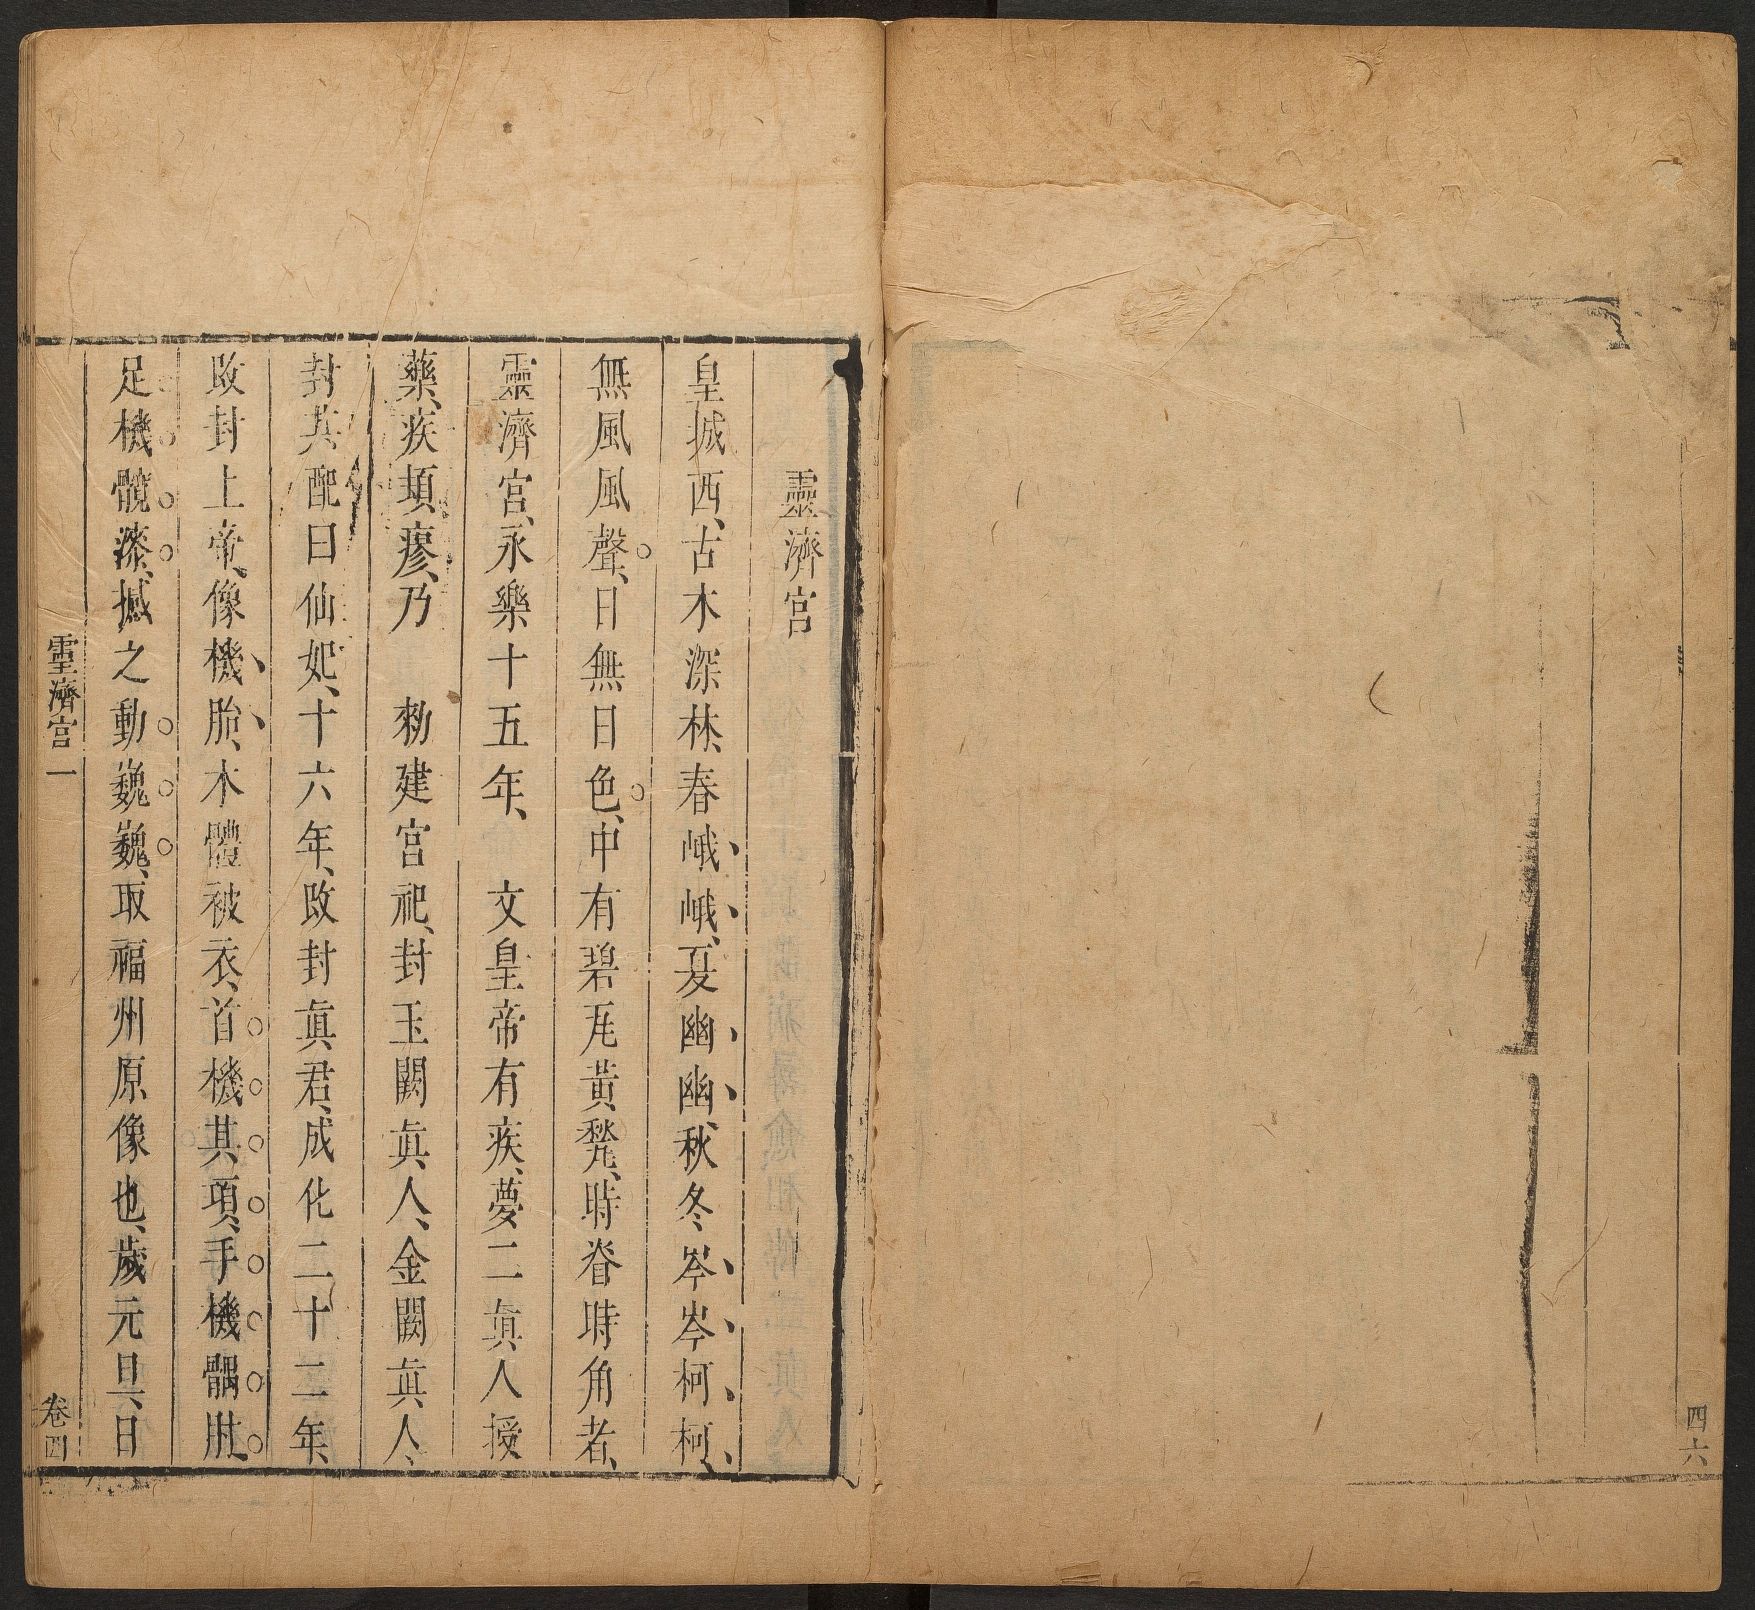 四六
靈濟宮
皇城西、古木深林、春峨峨、夏幽幽、秋冬岑岑柯柯、
無風風聲、日無日色、中有碧瓦黃甃、時脊時角者、
靈濟宮、永樂十五年、文皇帝有疾、夢二眞人授
藥、疾頓瘳、乃勑建宮祀、封玉闕眞人、金闕眞人、
封其配曰仙妃、十六年、改封眞君、成化二十二年、
改封上帝、像機胎、木體被衣、首機其項、手機髃肘、
足機髖漆、撼之動巍巍、取福州原像也、歲元旦、日
靈濟宮一
卷四